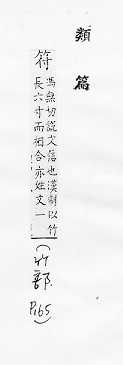 類篇
符
馮無切說文信也漢制以竹
長六寸而相合亦姓文一
(竹部
P.165)